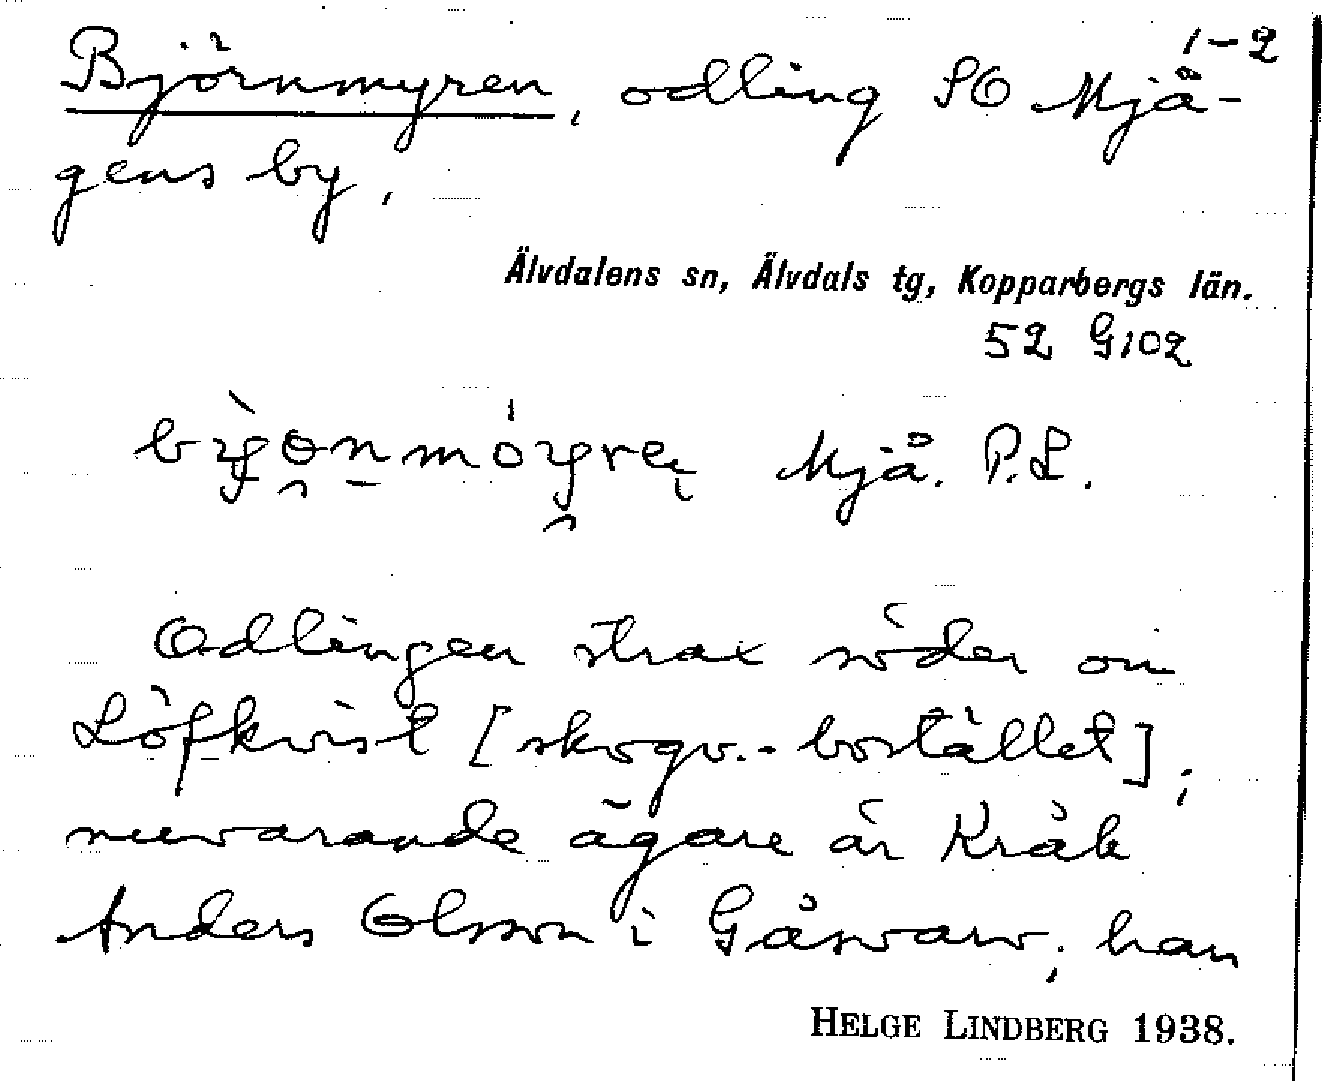 1-2
Björnmyren, odling SO Mjå-
gens by.
Älvdalens sn, Älvdals tg, Kopparbergs län.
52 G102
Mjå. P.L.
Odlingen strax söder om
Löfkvist [skogv.-bostället];
nuvarande ägare är Kråk
Anders Olsson i Gåsvarv; han
HELGE LINDBERG 1938.